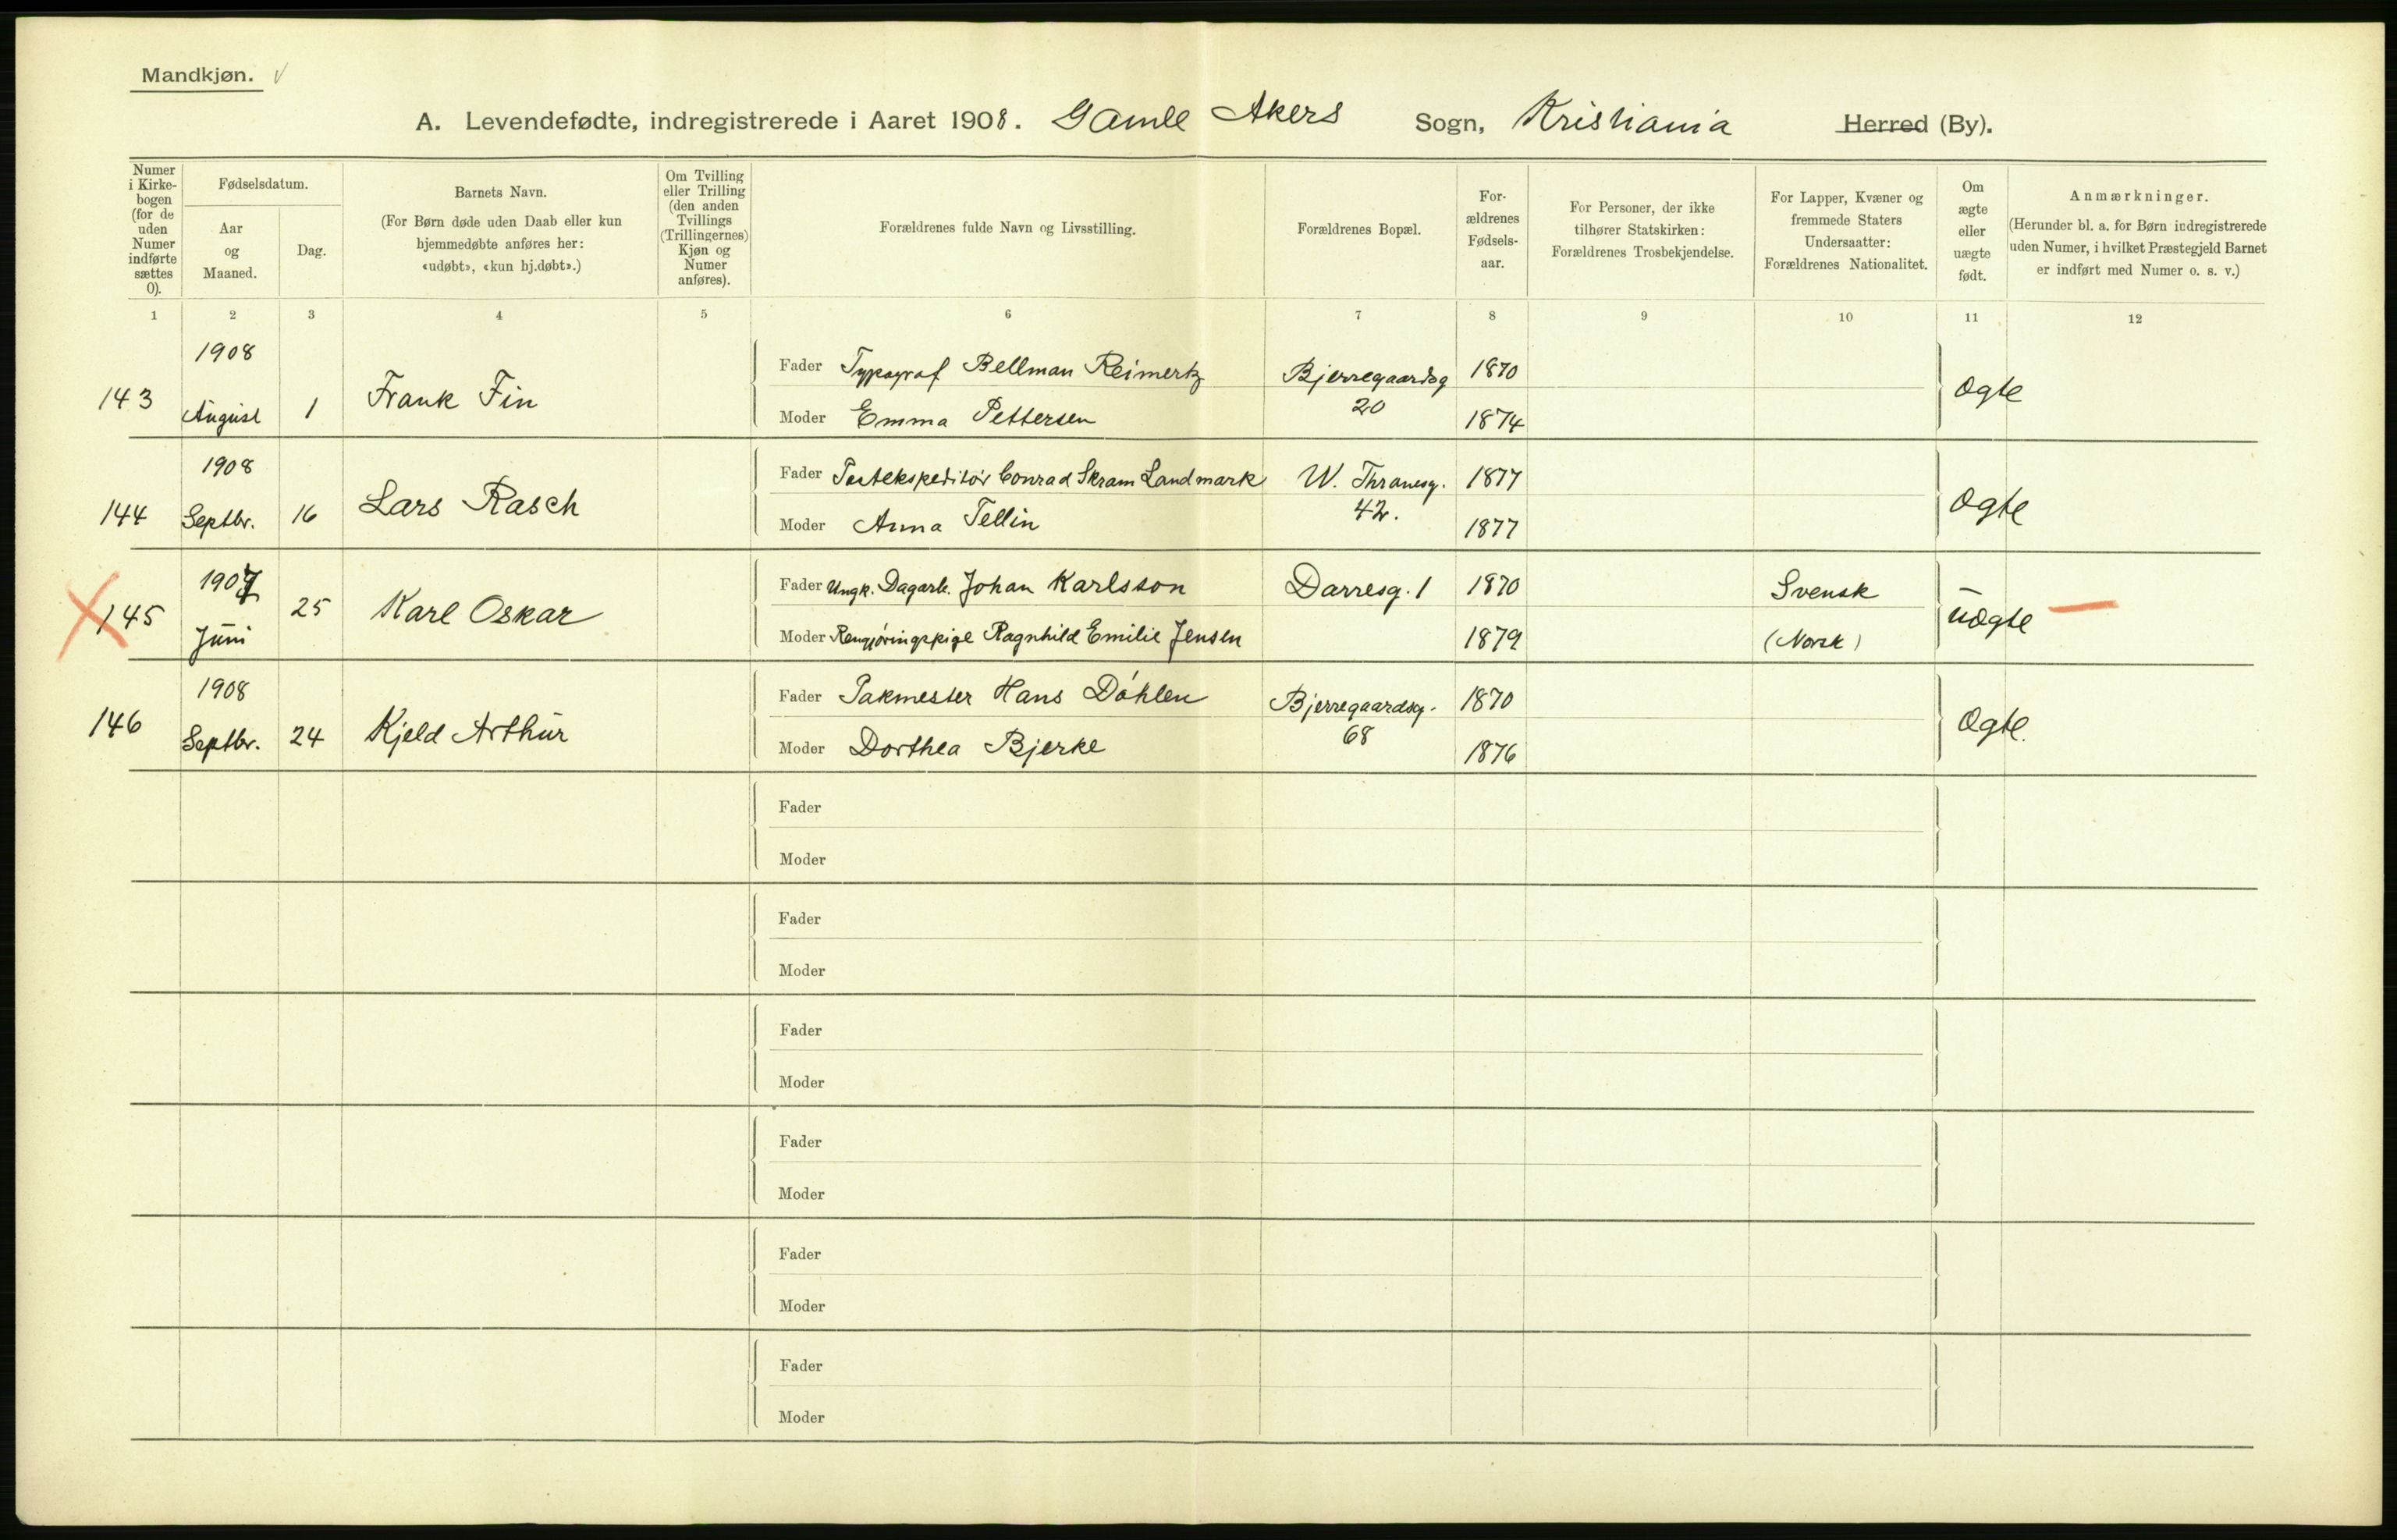 Mandkjøn. ✓
A. Levendefødte, indregistrerede i Aaret 1908. Gamle Akers Sogn, Kristiania Herred (By).
Numer i Kirke-bogen (for de uden Numer indførte sættes 0).
Fødselsdatum.
Aar og Maaned.
Dag.
Barnets Navn.
(For Børn døde uden Daab eller kun
hjemmedøbte anføres her:
«udøbt», «kun hj.døbt».)
Om Tvilling
eller Trilling
(den anden
Tvillings
(Trillingernes)
Kjøn og
Numer
anføres).
Forældrenes fulde Navn og Livsstilling.
Forældrenes Bopæl.
For-
ældrenes
Fødsels-
aar.
For Personer, der ikke
tilhører Statskirken:
Forældrenes Trosbekjendelse.
For Lapper, Kvæner og
fremmede Staters
Undersaatter:
Forældrenes Nationalitet.
Om
ægte
eller
uægte
født.
Anmærkninger.
(Herunder bl. a. for Børn indregistrerede
uden Numer, i hvilket Præstegjeld Barnet
er indført med Numer o. s. v.)
1 2 3 4 5 6 7 8 9 10 11 12
143 1908 August 1 Frank Fin
Fader Typograf Bellman Reimertz Bjerregaardsg 20 1870
Moder Emma Pettersen 1874
ægte
144 1908 Septbr. 16 Lars Rasch
Fader Postekspeditør Conrad Skram Landmark W. Thranesg. 42. 1877
Moder Anna Tellin 1877
ægte
145 1907 Juni 25 Karl Oskar
Fader Ungk. Dagarb. Johan Karlsson Darresg. 1 1870 Svensk
Moder Rengjøringspige Ragnhild Emilie Jensen 1879 (Norsk)
uægte
146 1908 Septbr. 24 Kjeld Arthur
Fader Pakmester Hans Døhlen Bjerregaardsg. 68 1870
Moder Dorthea Bjerke 1876
ægte.
Fader
Moder
Fader
Moder
Fader
Moder
Fader
Moder
Fader
Moder
Fader
Moder